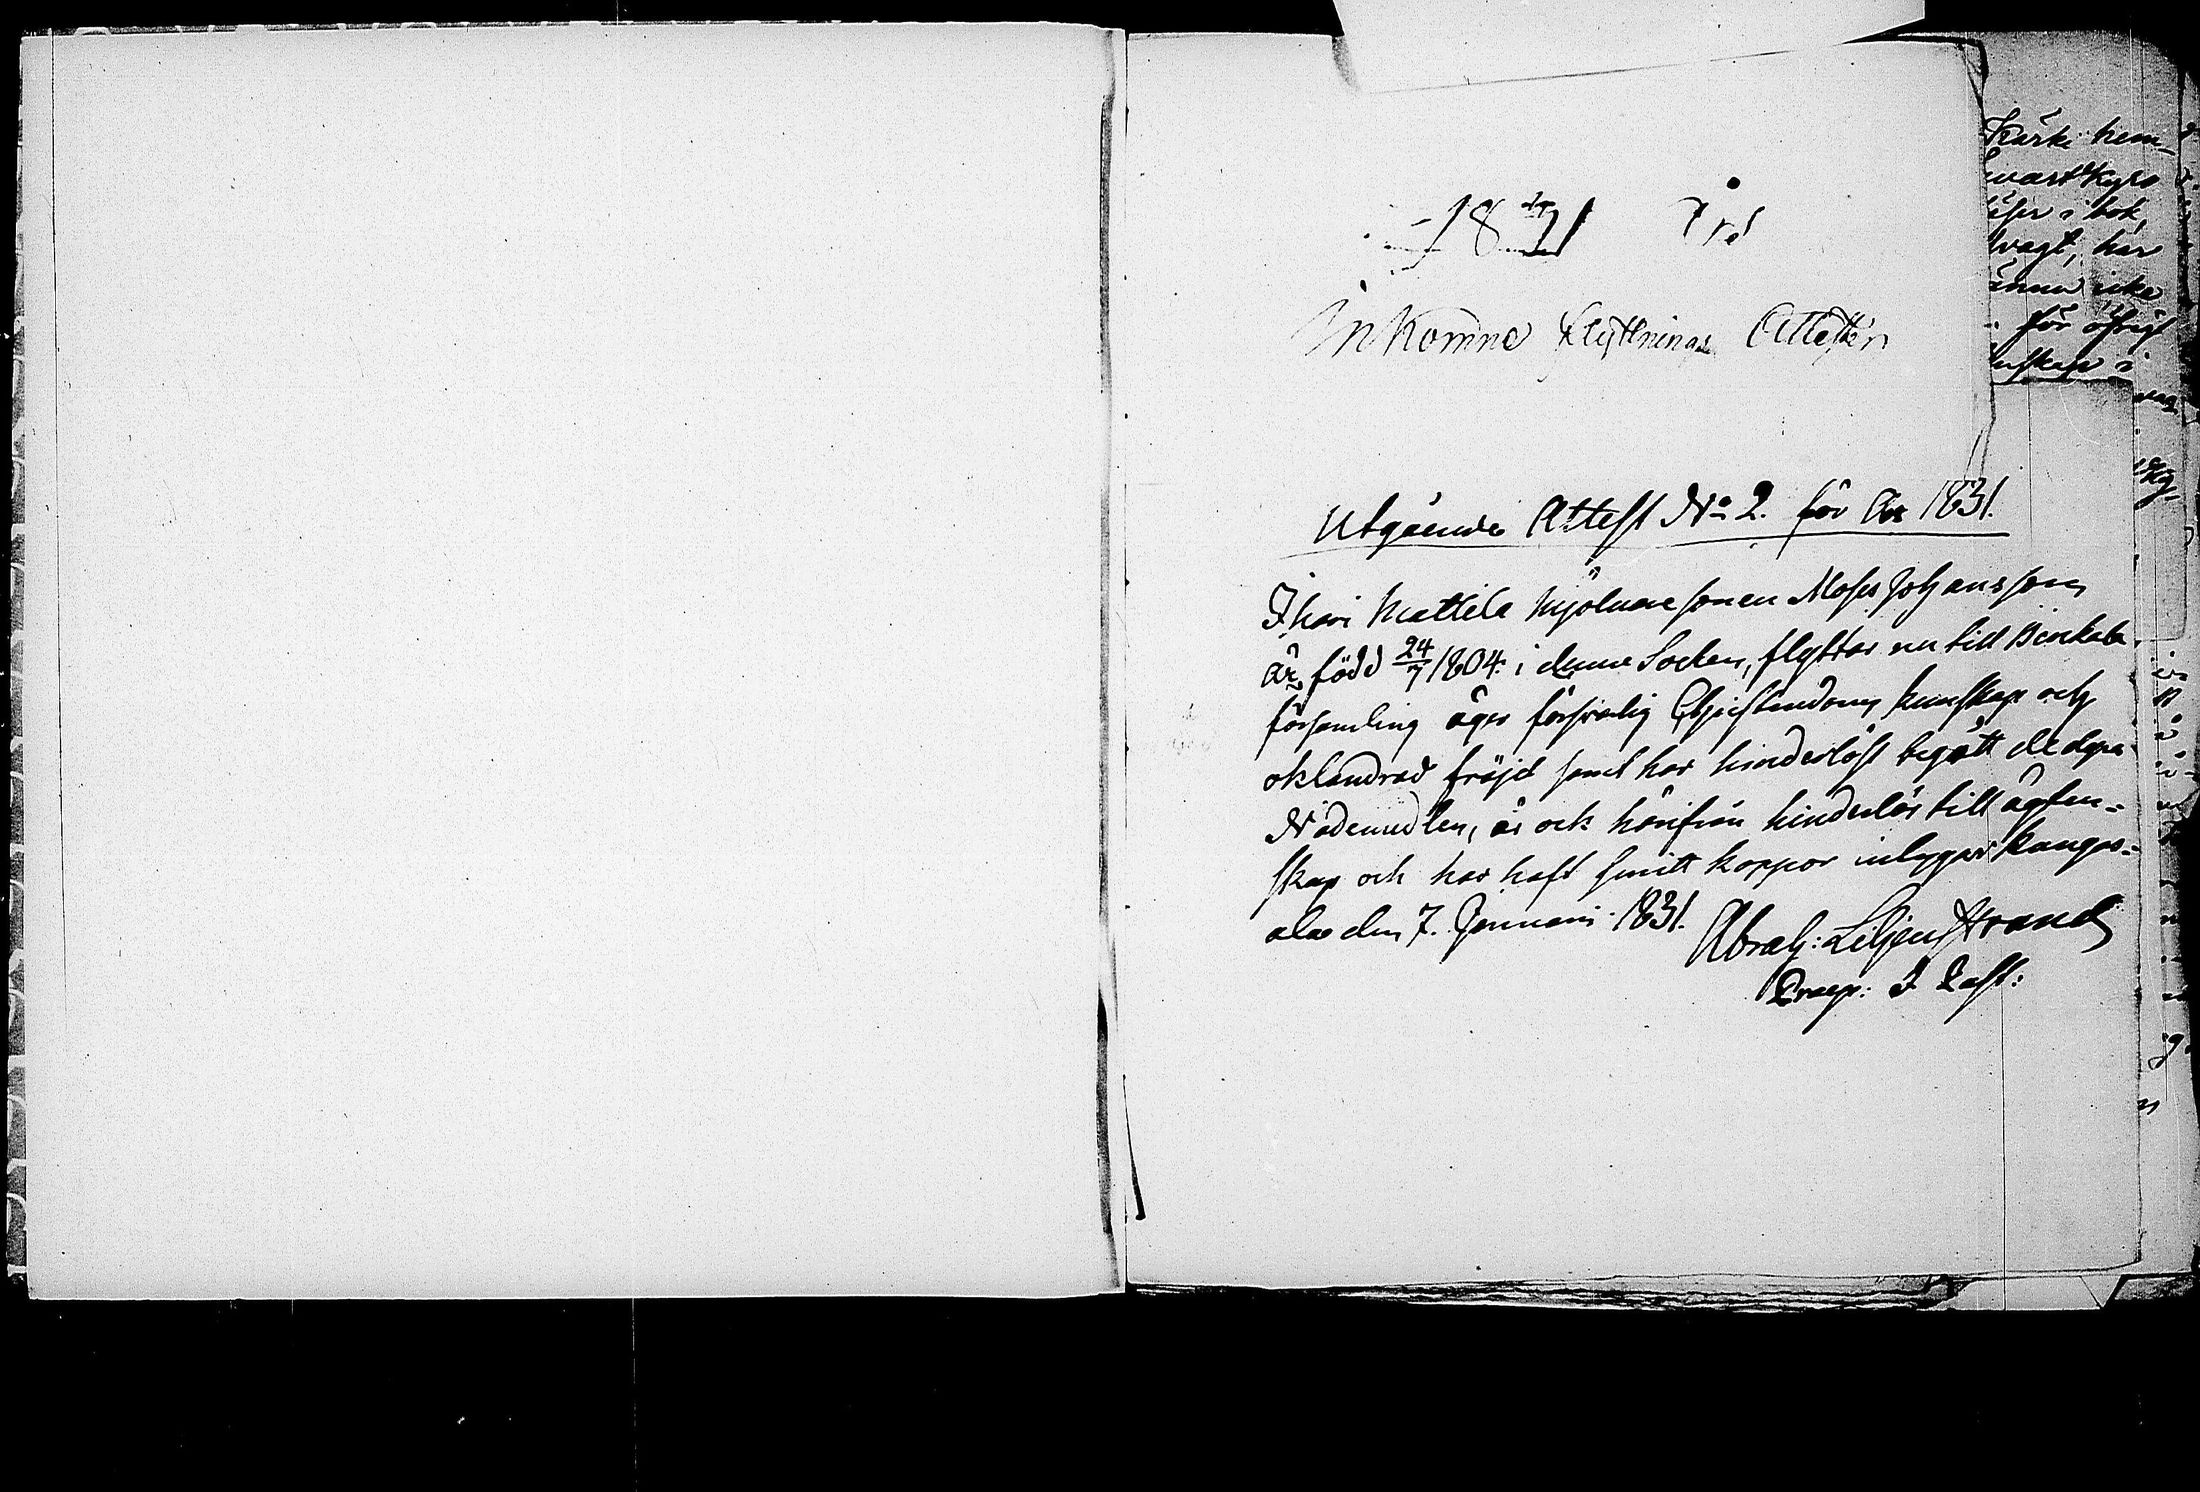 1831 Års
Inkomne Flyttnings Attester
Utgående Attest No 2. för År 1831.
Ihari Mattila Mjölnare sonen Moses Johansson
är född 24/7 1804 i denne Socken, flyttar nu till Birkala
församling äger försvarlig Christendoms kunskap och
oklandrad fräjd samt har hinderlöst begått de dyra
Nådemedlen, är ock härifrån hinderlös till ägten-
skap och har haft smitt koppor intygar Kangas-
ala den 7. Januari 1831.
Abrah: Liljenstrand
Praep: & Past:
Kärki hem-
i bok,
har
ännu icke
för öfrigt